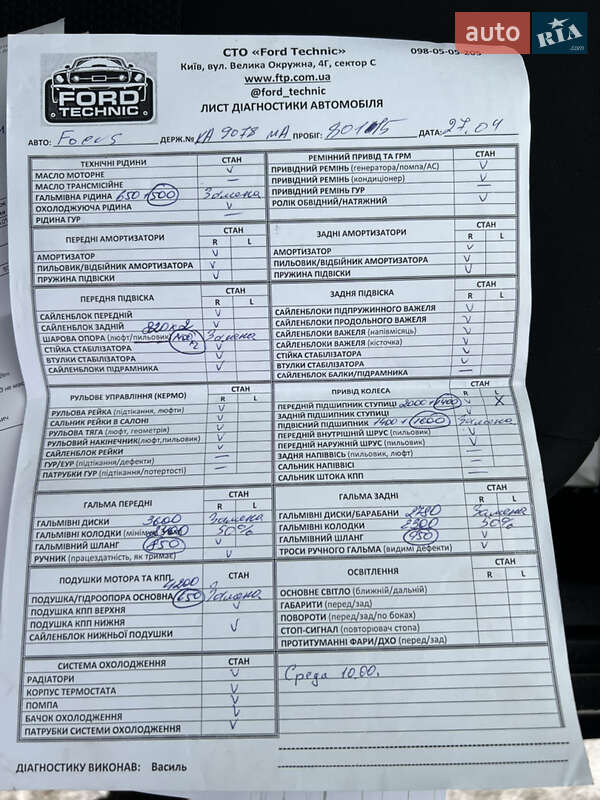 auto RIA .com
FORD TECHNIC
СТО «Ford Technic» 098-05-05-205
Київ, вул. Велика Окружна, 4Г, сектор С
www.ftp.com.ua
@ford_technic
ЛИСТ ДІАГНОСТИКИ АВТОМОБІЛЯ
АВТО: Focus ДЕРЖ.№ КА 9078 МА ПРОБІГ: ДАТА: 27.04
ТЕХНІЧНІ РІДИНИ СТАН
МАСЛО МОТОРНЕ
МАСЛО ТРАНСМІСІЙНЕ
ГАЛЬМІВНА РІДИНА 650 + 500 Замена
ОХОЛОДЖУЮЧА РІДИНА
РІДИНА ГУР
РЕМІННИЙ ПРИВІД ТА ГРМ СТАН
ПРИВІДНИЙ РЕМІНЬ (генератора/помпа/АС)
ПРИВІДНИЙ РЕМІНЬ (кондиціонер)
ПРИВІДНИЙ РЕМІНЬ ГУР
РОЛІК ОБВІДНИЙ/НАТЯЖНИЙ
ПЕРЕДНІ АМОРТИЗАТОРИ СТАН
R L
АМОРТИЗАТОР
ПИЛЬОВИК/ВІДБІЙНИК АМОРТИЗАТОРА
ПРУЖИНА ПІДВІСКИ
ЗАДНІ АМОРТИЗАТОРИ СТАН
R L
АМОРТИЗАТОР
ПИЛЬОВИК/ВІДБІЙНИК АМОРТИЗАТОРА
ПРУЖИНА ПІДВІСКИ
ПЕРЕДНЯ ПІДВІСКА СТАН
R L
САЙЛЕНБЛОК ПЕРЕДНІЙ
САЙЛЕНБЛОК ЗАДНІЙ 820х2
ШАРОВА ОПОРА (люфт/пильовик) Замена
СТІЙКА СТАБІЛІЗАТОРА
ВТУЛКИ СТАБІЛІЗАТОРА
САЙЛЕНБЛОКИ ПІДРАМНИКА
ЗАДНЯ ПІДВІСКА СТАН
R L
САЙЛЕНБЛОКИ ПІДПРУЖИННОГО ВАЖЕЛЯ
САЙЛЕНБЛОКИ ПРОДОЛЬНОГО ВАЖЕЛЯ
САЙЛЕНБЛОКИ ВАЖЕЛЯ (напівмісяць)
САЙЛЕНБЛОКИ ВАЖЕЛЯ (кісточка)
СТІЙКА СТАБІЛІЗАТОРА
ВТУЛКИ СТАБІЛІЗАТОРА
САЙЛЕНБЛОК БАЛКИ/ПІДРАМНИКА
РУЛЬОВЕ УПРАВЛІННЯ (КЕРМО) СТАН
R L
РУЛЬОВА РЕЙКА (підтікання, люфти)
САЛЬНИК РЕЙКИ В САЛОНІ
РУЛЬОВА ТЯГА (люфт, геометрія)
РУЛЬОВИЙ НАКІНЕЧНИК(люфт,пильовик)
САЙЛЕНБЛОК РЕЙКИ
ГУР/ЕУР (підтікання/дефекти)
ПАТРУБКИ ГУР (підтікання/потертості)
ПРИВІД КОЛЕСА СТАН
R L
ПЕРЕДНІЙ ПІДШИПНИК СТУПИЦІ 2000 + 1400 X
ЗАДНІЙ ПІДШИПНИК СТУПИЦІ
ПІДВІСНИЙ ПІДШИПНИК 1400 + 1600 Замена
ПЕРЕДНІЙ ВНУТРІШНІЙ ШРУС (пильовик)
ПЕРЕДНІЙ НАРУЖНІЙ ШРУС (пильовик)
ЗАДНЯ НАПІВВІСЬ (пильовик, люфт)
САЛЬНИК НАПІВВІСІ
САЛЬНИК ШТОКА КПП
ГАЛЬМА ПЕРЕДНІ СТАН
R L
ГАЛЬМІВНІ ДИСКИ 3600 Замена
ГАЛЬМІВНІ КОЛОДКИ 50%
ГАЛЬМІВНИЙ ШЛАНГ 850
РУЧНИК (працездатність, як тримає)
ГАЛЬМА ЗАДНІ СТАН
R L
ГАЛЬМІВНІ ДИСКИ/БАРАБАНИ Замена
ГАЛЬМІВНІ КОЛОДКИ 2300 50%
ГАЛЬМІВНИЙ ШЛАНГ 950
ТРОСИ РУЧНОГО ГАЛЬМА (видимі дефекти)
ПОДУШКИ МОТОРА ТА КПП СТАН
4200
ПОДУШКА/ГІДРООПОРА ОСНОВНА 650 Замена
ПОДУШКА КПП ВЕРХНЯ
ПОДУШКА КПП НИЖНЯ
САЙЛЕНБЛОК НИЖНЬОЇ ПОДУШКИ
ОСВІТЛЕННЯ СТАН
R L
ОСНОВНЕ СВІТЛО (ближній/дальній)
ГАБАРИТИ (перед/зад)
ПОВОРОТИ (перед/зад/по боках)
СТОП-СИГНАЛ (повторювач стопа)
ПРОТИТУМАННІ ФАРИ/ДХО (перед/зад)
СИСТЕМА ОХОЛОДЖЕННЯ СТАН
РАДІАТОРИ
КОРПУС ТЕРМОСТАТА
ПОМПА
БАЧОК ОХОЛОДЖЕННЯ
ПАТРУБКИ СИСТЕМИ ОХОЛОДЖЕННЯ
Среда 10.00.
ДІАГНОСТИКУ ВИКОНАВ: Василь